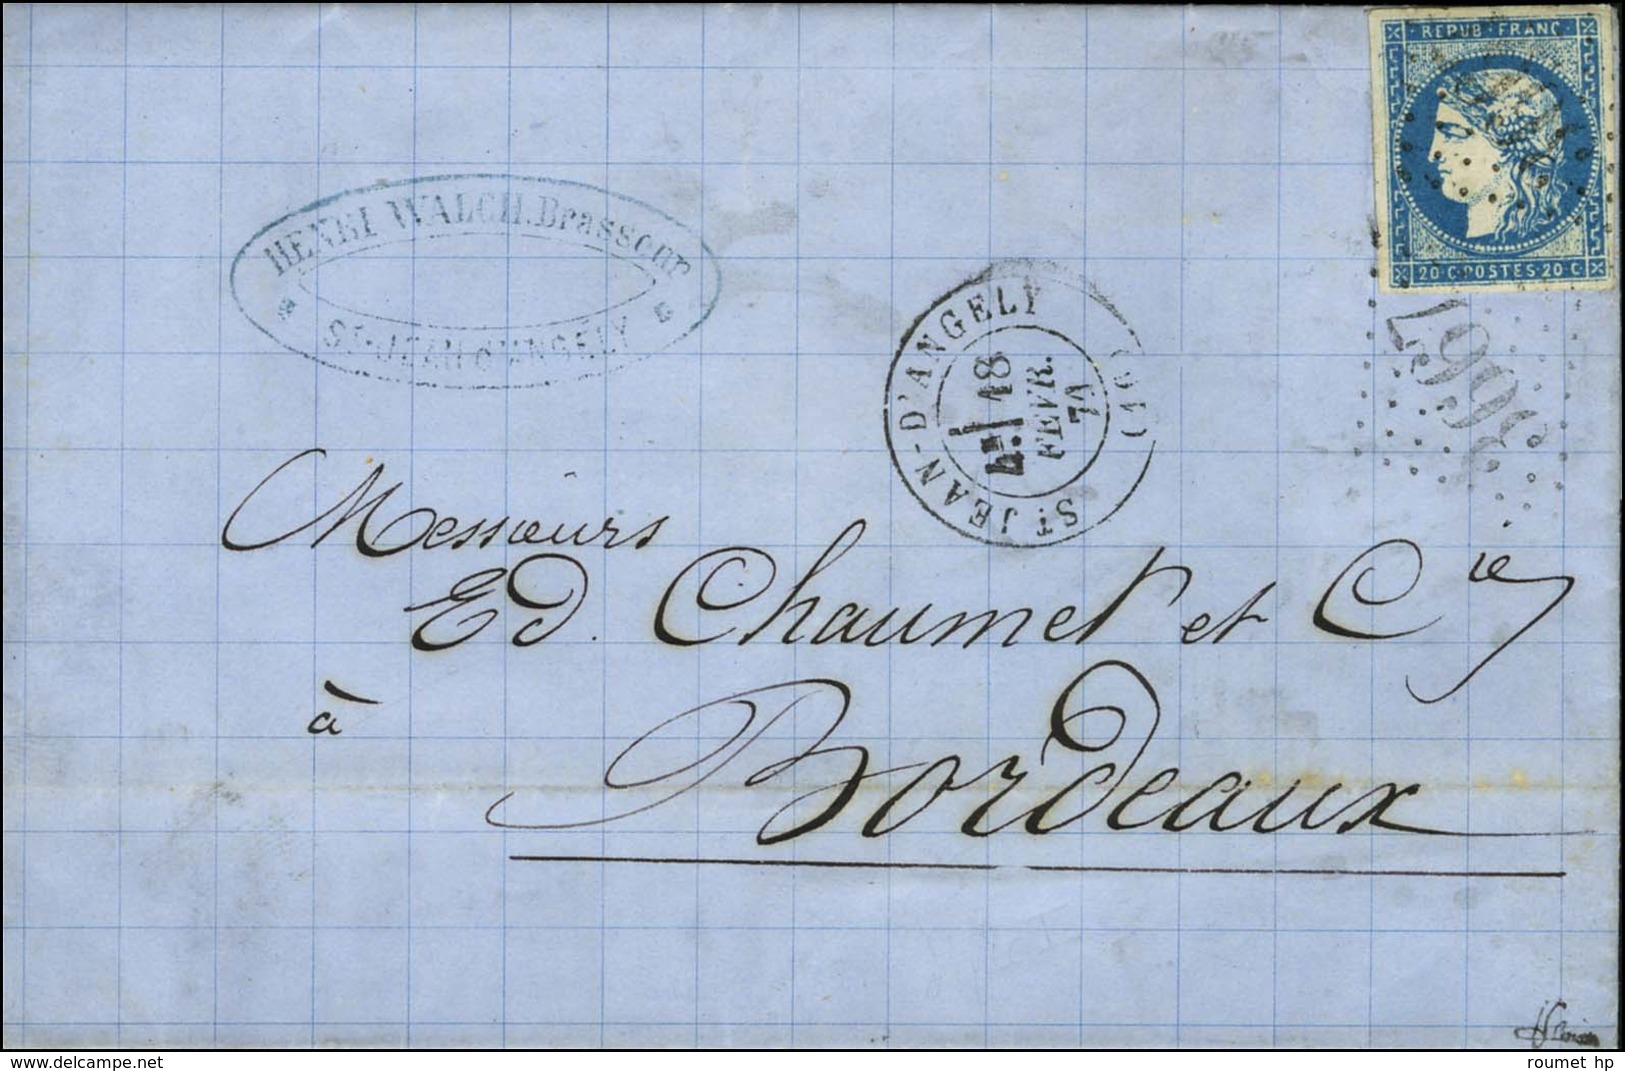 REPUB·FRANC
20 C·POSTES·20 C
HENRI WALCH. Brasseur
ST-JEAN d'ANGÉLY
ST JEAN-D'ANGELY (16)
4E 18
FEVR.
71
3667
Messieurs
Ed. Chaumet et Cie
à
Bordeaux
roumet hp